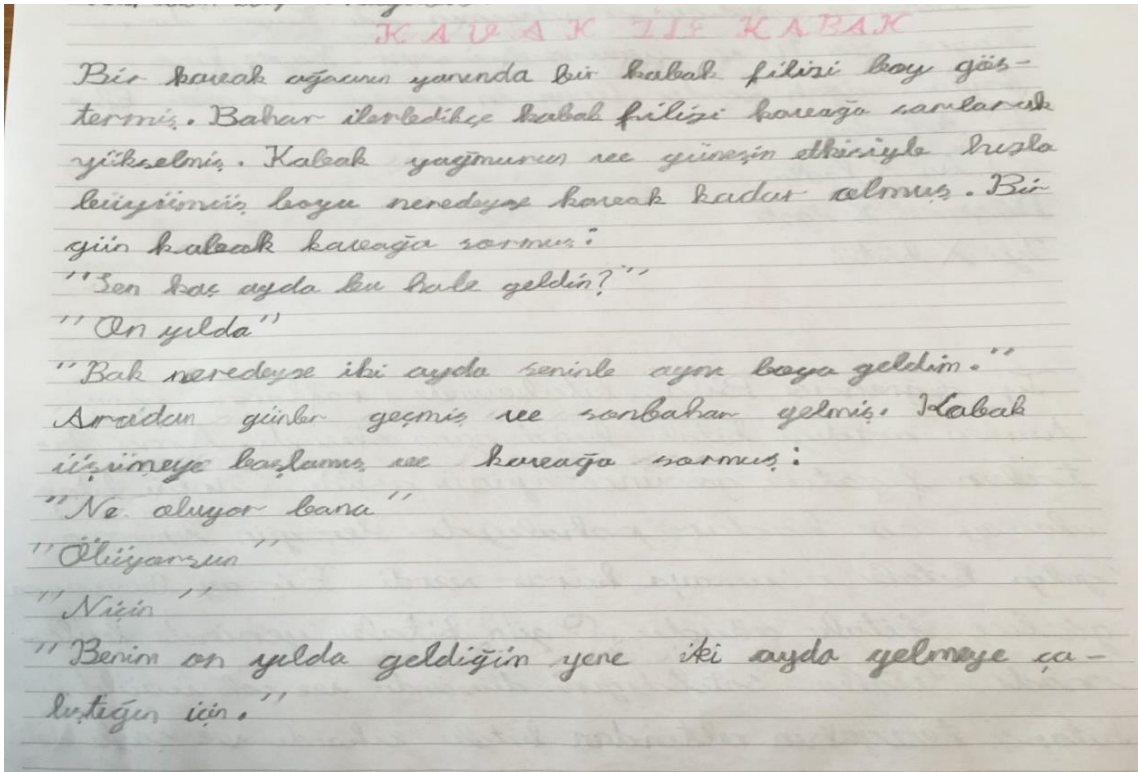 KAVAK İLE KABAK
Bir kavak ağacının yanında bir kabak filizi boy gös-
termiş. Bahar ilerledikçe kabak filizi kavağa sarılarak
yükselmiş. Kabak yağmurun ve güneşin etkisiyle hızla
büyümüş boyu neredeyse kavak kadar olmuş. Bir
gün kabak kavağa sormuş:
"Sen kaç ayda bu hale geldin?"
"On yılda"
"Bak neredeyse iki ayda seninle aynı boya geldim."
Aradan günler geçmiş ve sonbahar gelmiş. Kabak
üşümeye başlamış ve kavağa sormuş:
"Ne oluyor bana"
"Ölüyorsun"
"Niçin"
"Benim on yılda geldiğim yere iki ayda gelmeye ça-
lıştığın için."